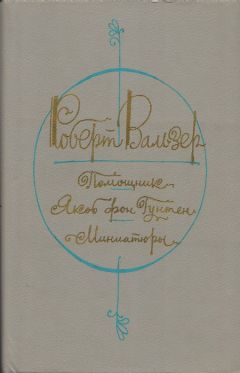 Роберт Вальзер
Помощник
Якоб фон Гунтен
Миниатюры